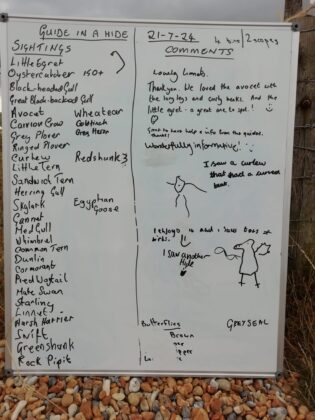 GUIDE IN A HIDE
SIGHTINGS
Little Egret
Oystercatcher 150+
Black-headed Gull
Great Black-backed Gull
Avocet Wheatear
Carrion Crow Goldfinch
Grey Plover Grey Heron
Ringed Plover
Curlew Redshunk 3
Little Tern
Sandwich Tern
Herring Gull
Skylark Egyptian Goose
Gannet
Med Gull
Whimbrel
Common Tern
Dunlin
Cormorant
Pied Wagtail
Mute Swan
Starling
Linnet
Marsh Harrier
Swift
Greenshunk
Rock Pipit
21-7-24
COMMENTS
Lovely
Thankyou. We loved the avocet with
the long legs and curly beaks. And the
little egret - a great one to spot!
Great to have help & info from the guides.
thanks!
Wonderfully informative!
I saw a curlew
that had a curved
beak.
birds.
I saw another
Butterflies
Brown
GREY SEAL